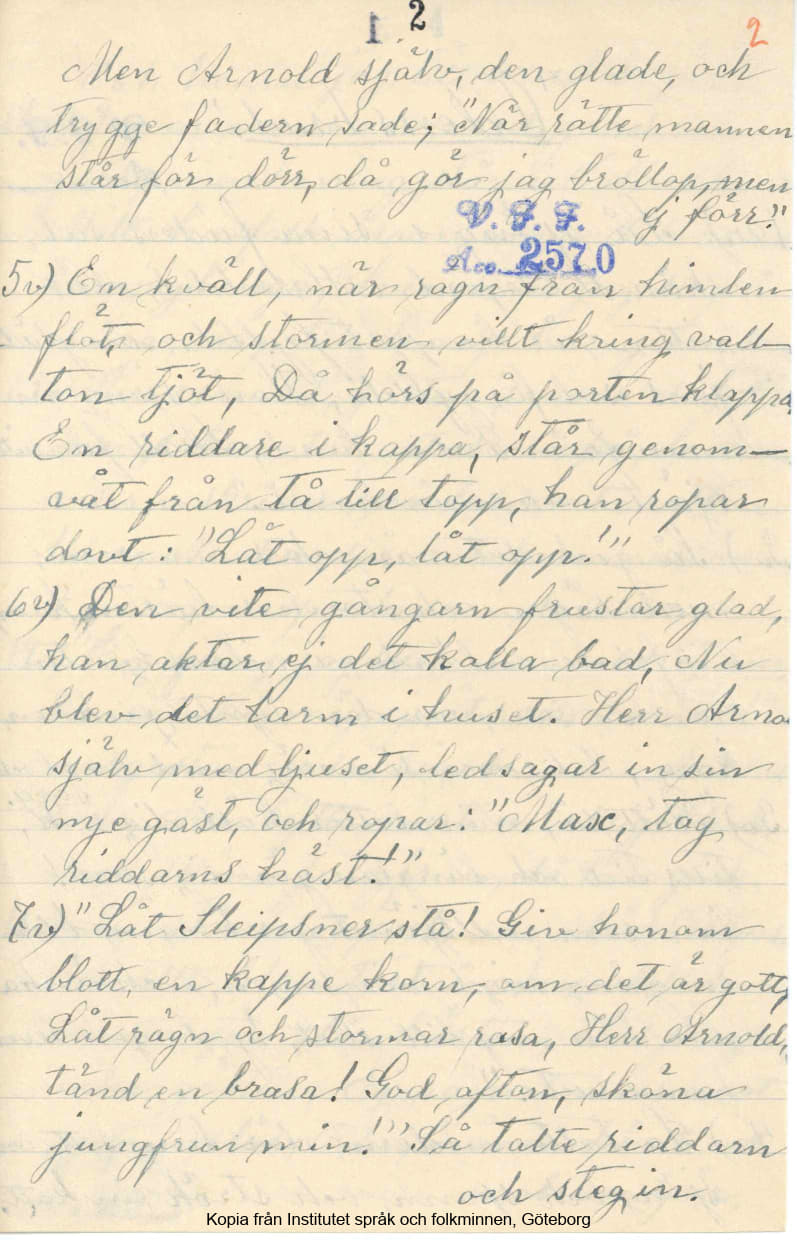 1. 2
2
Men Arnold själv, den glade, och
trygge fadern sade; "När rätte mannen
står för dörr, då gör jag bröllop, men
ej förr."
V. F. F.
Acc. 2570
5v) En kväll, när ragn från himlen
flöt, och stormen villt kring vall-
ton tjöt, Då hörs på porten klappa
En riddare i kappa, står genom-
våt från tå till topp, han ropar
dovt: "Låt opp, låt opp!"
6v) Den vite gångarn frustar glad,
han aktar ej det kalla bad, Nu
blev det larm i huset. Herr Arno
själv med ljuset, ledsagar in sin
nye gäst, och ropar: "Max, tag
riddarns häst!"
7v) "Låt Sleipsner stå! Giv honom
blott, en kappe korn, om det är gott,
Låt rägn och stormar rasa, Herr Arnold,
tänd en brasa! God afton, sköna
jungfrun min!" Så talte riddarn
och steg in.
Kopia från Institutet språk och folkminnen, Göteborg